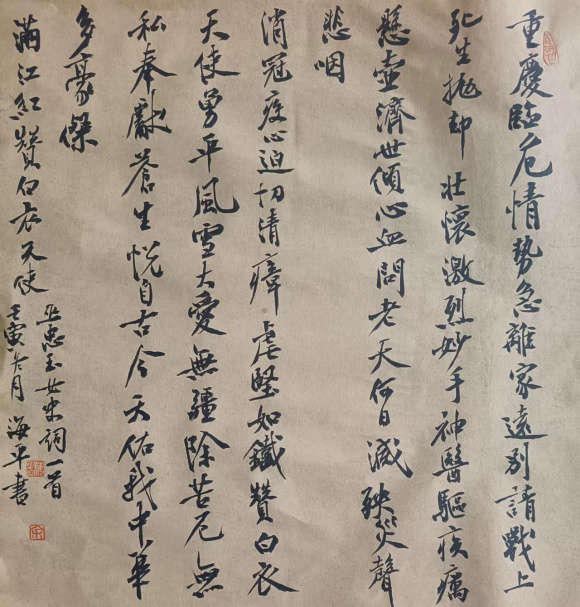 重慶臨危情勢急離家遠別請戰上
死生拋却壯懷激烈妙手神醫驅疾癘
懸壺濟世傾心血問老天何日滅殃災聲
悲咽
消冠疫心迫切清瘴虐堅如鐵贊白衣
天使勇平風雪大愛無疆除苦厄無
私奉獻蒼生悅自古今天佑我中華
多豪傑
滿江紅贊白衣天使
巫惠玉女史詞一首
壬寅冬月海平書